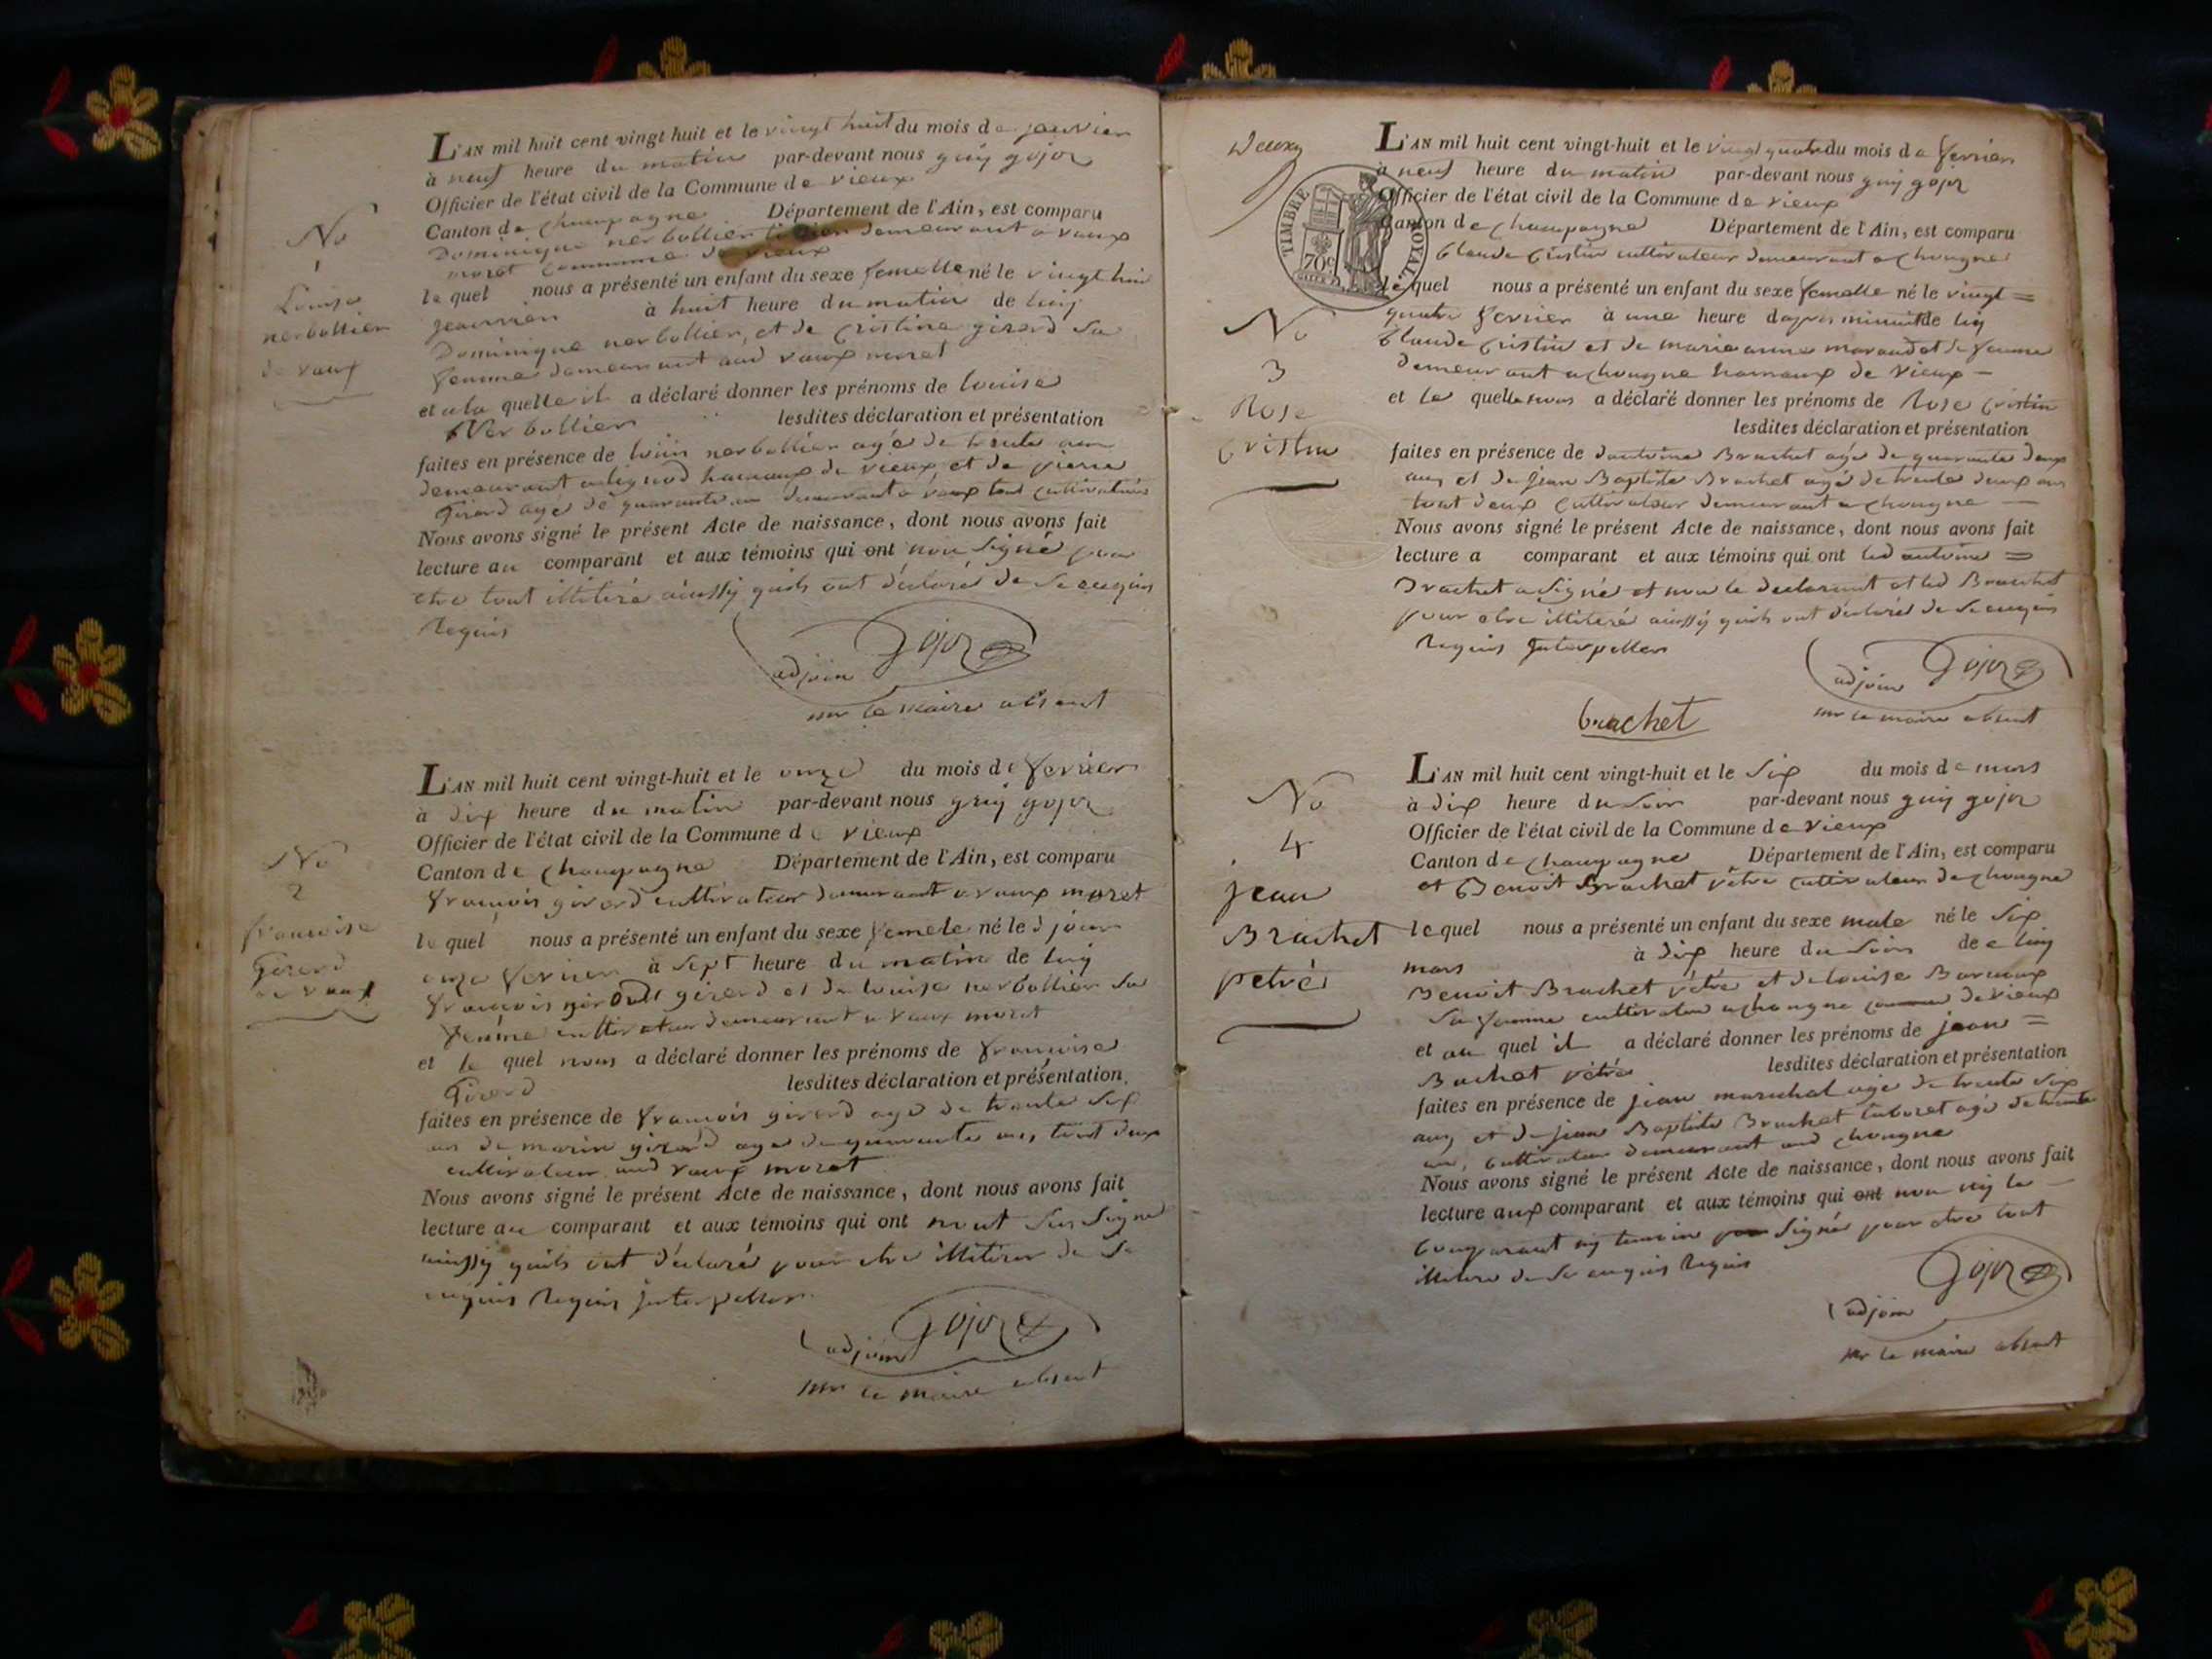 L'AN mil huit cent vingt huit et le vingt huit du mois de janvier
à neuf heure du matin par-devant nous guy gojoz
Officier de l'état civil de la Commune de vieux
Canton de champagne Département de l'Ain, est comparu
Dominique nerbollier demeurant a vaux
moret commune de vieux
No
1
Louise
nerbollier
de vaux
le quel nous a présenté un enfant du sexe femelle né le vingt huit
janvier à huit heure du matin de luy
Dominique nerbollier, et de cristine girerd sa
femme demeurant aud vaux moret
et a la quelle il a déclaré donner les prénoms de louise
Nerbollier lesdites déclaration et présentation
faites en présence de louis nerbollier agé de trente ans
demeurant a hamaux de vieux et de pierre
Girerd agé de quarante an demeurant a vaux tout cultivateurs
Nous avons signé le présent Acte de naissance, dont nous avons fait
lecture au comparant et aux témoins qui ont non signé pour
etre tout illitéré ainssy quils ont déclaré de ce enquis
requis
Gojoz
adjoin
mr le maire absent
L'AN mil huit cent vingt-huit et le onze du mois de fevrier
à dix heure du matin par-devant nous guy gojoz
Officier de l'état civil de la Commune de vieux
Canton de champagne Département de l'Ain, est comparu
françois girerd cultivateur demeurant a vaux moret
No
2
francoise
Girerd
de vaux
le quel nous a présenté un enfant du sexe femele né le d jour
onze fevrier à sept heure du matin de luy
françois girerd et de louise nerbollier sa
femme cultivateur demeurant a vaux moret
et le quel nous a déclaré donner les prénoms de francoise
Girerd lesdites déclaration et présentation
faites en présence de françois girerd agé de trente six
ans de marin girerd agé de quarante ans, tout deux
cultivateur aud vaux moret
Nous avons signé le présent Acte de naissance, dont nous avons fait
lecture au comparant et aux témoins qui ont signé
ainssy quils ont déclaré pour etre illitérer de ce
enquis requis jnterpeller
Gojoz
adjoin
mr le maire absent
Deux
TIMBRE ROYAL
70c
L'AN mil huit cent vingt-huit et le vingt quatre du mois de fevrier
à neuf heure du matin par-devant nous guy gojoz
Officier de l'état civil de la Commune de vieux
Canton de champagne Département de l'Ain, est comparu
Claude Cristin cultivateur demeurant a chongne
le quel nous a présenté un enfant du sexe femelle né le vingt =
quatre fevrier à une heure dapres minuit de luy
Claude Cristin et de marie anne sa femme
demeurant a chongne hamaux de vieux
No
3
Rose
Cristin
et le quelle nous a déclaré donner les prénoms de Rose Cristin
lesdites déclaration et présentation
faites en présence de dantoine Brachet agé de quarante deux
ans et de jean Baptiste Brachet agé de trente deux ans
tout deux cultivateur demeurant a chongne
Nous avons signé le présent Acte de naissance, dont nous avons fait
lecture a comparant et aux témoins qui ont led antoine =
Brachet a signé et non le declarant et led Brachet
pour etre illiteré ainssy quils ont déclaré de ce enquis
requis jnterpeller
Gojoz
adjoin
mr le maire absent
brachet
L'AN mil huit cent vingt-huit et le six du mois de mars
à dix heure du soir par-devant nous guy gojoz
Officier de l'état civil de la Commune de vieux
Canton de champagne Département de l'Ain, est comparu
et Benoit Brachet cultivateur de chongne
No
4
jean
Brachet
petré
le quel nous a présenté un enfant du sexe male né le six
mars à dix heure du soir de luy
Benoit Brachet et de louise
sa femme cultivateur a chongne commune de vieux
et au quel il a déclaré donner les prénoms de jean =
Bachet lesdites déclaration et présentation
faites en présence de jean marechal agé de trente six
ans et de jean Baptiste Brachet agé de trente
an, cultivateur demeurant aud chongne
Nous avons signé le présent Acte de naissance, dont nous avons fait
lecture aux comparant et aux témoins qui ont non ny le
comparant ny temoin signé pour etre tout
illitere de ce enquis requis
Gojoz
adjoin
mr le maire absent